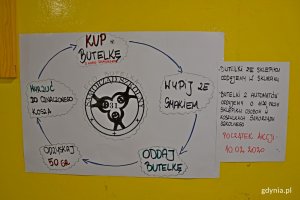 KUP
BUTELKĘ
WYPIJ ZE
SMAKIEM
ODDAJ
BUTELKĘ
ODZYSKAJ
50 gr
WRZUĆ
DO OZNACZONEGO
KOSZA
BUTELKI ZE SKLEPIKU
ODDAJEMY W SKLEPIKU
BUTELKI Z AUTOMATÓW
ODDAJEMY O
PRZY
SKLEPIKU OSOBOM W
KOSZULKACH SAMORZĄDU
SZKOLNEGO
POCZĄTEK AKCJI
10.02.2020
gdynia.pl